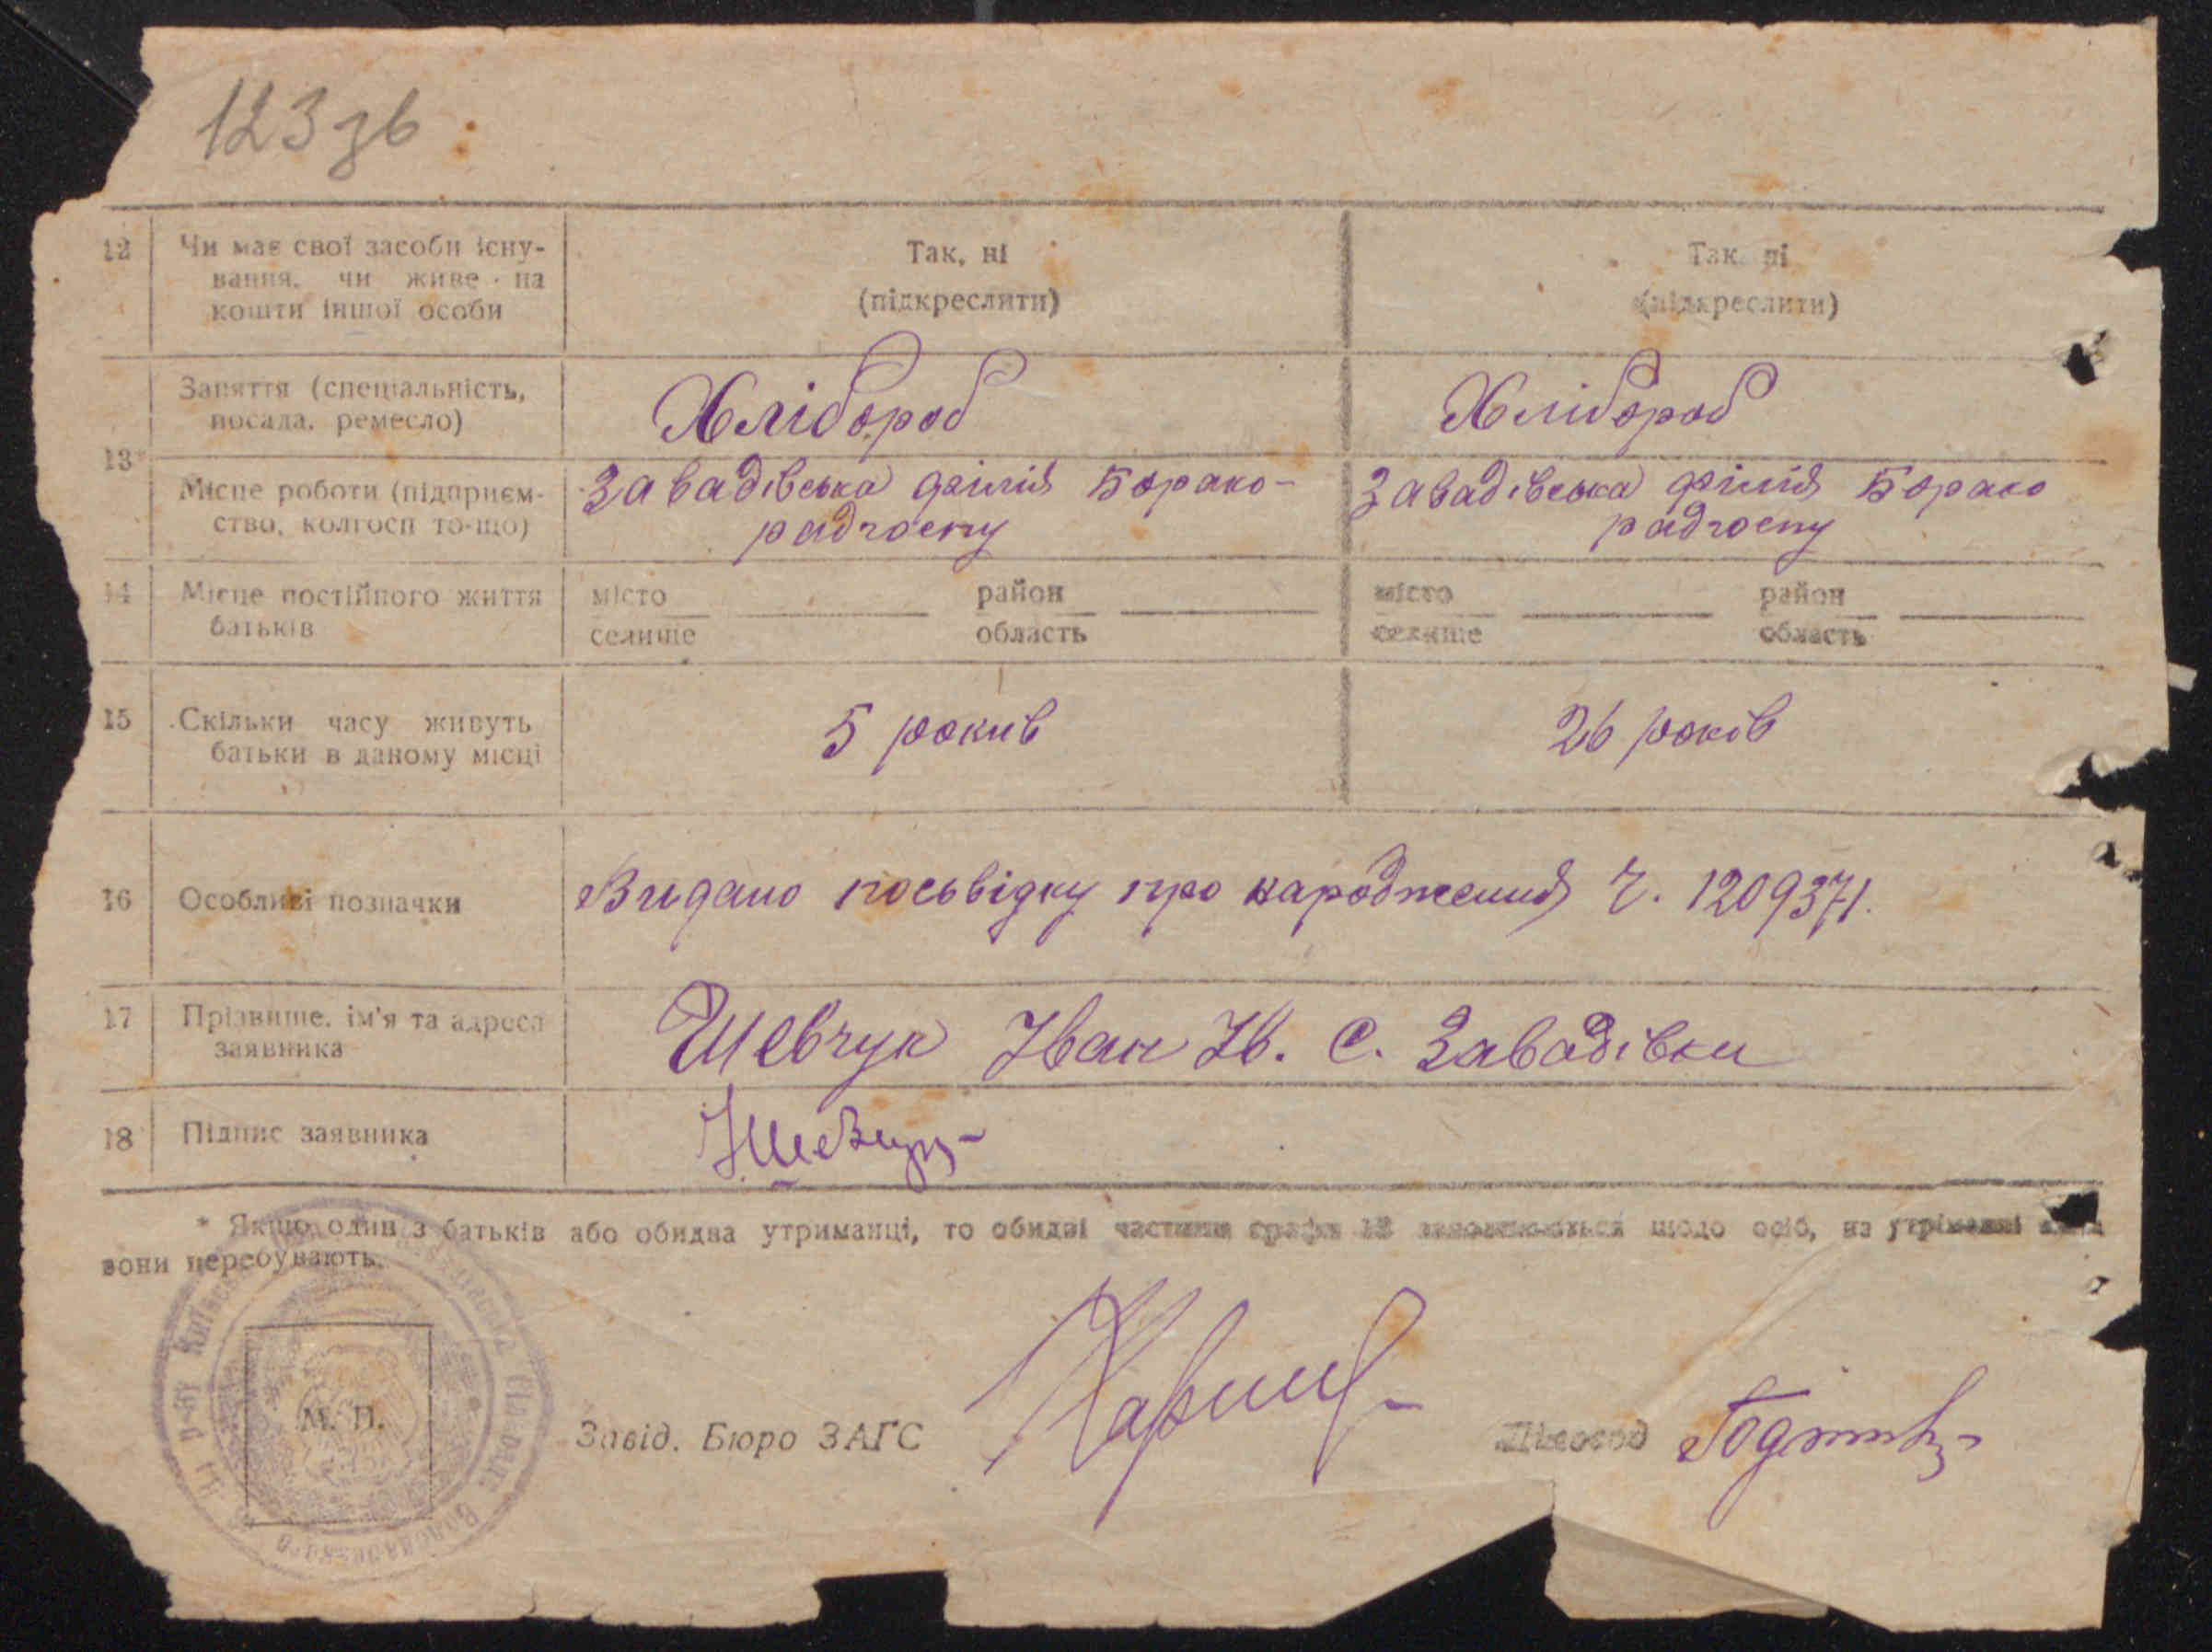 123 зв
12 Чи має свої засоби існу- Так, ні Так, ні
вання, чи живе на (підкреслити) (підкреслити)
кошти іншої особи
13* Заняття (спеціальність, Хлібороб Хлібороб
посада, ремесло)
Місце роботи (підприєм- Завадівська філія Борако- Завадівська філія Борако
ство, колгосп то-що) радгоспу радгоспу
14 Місце постійного життя місто район місто район
батьків селище область селище область
15 Скільки часу живуть 5 років 26 років
батьки в даному місці
16 Особливі позначки Видано посьвідку про народження Ч. 1209371.
17 Прізвище, ім'я та адреса Шевчук Іван Ів. С. Завадівки
заявника
18 Підпис заявника І Шевчук
* Якщо один з батьків або обидва утриманці, то обидві частини графи 13 заповнюються щодо осіб, на утриманні
вони перебувають.
М. П.
Завід. Бюро ЗАГС Діловод